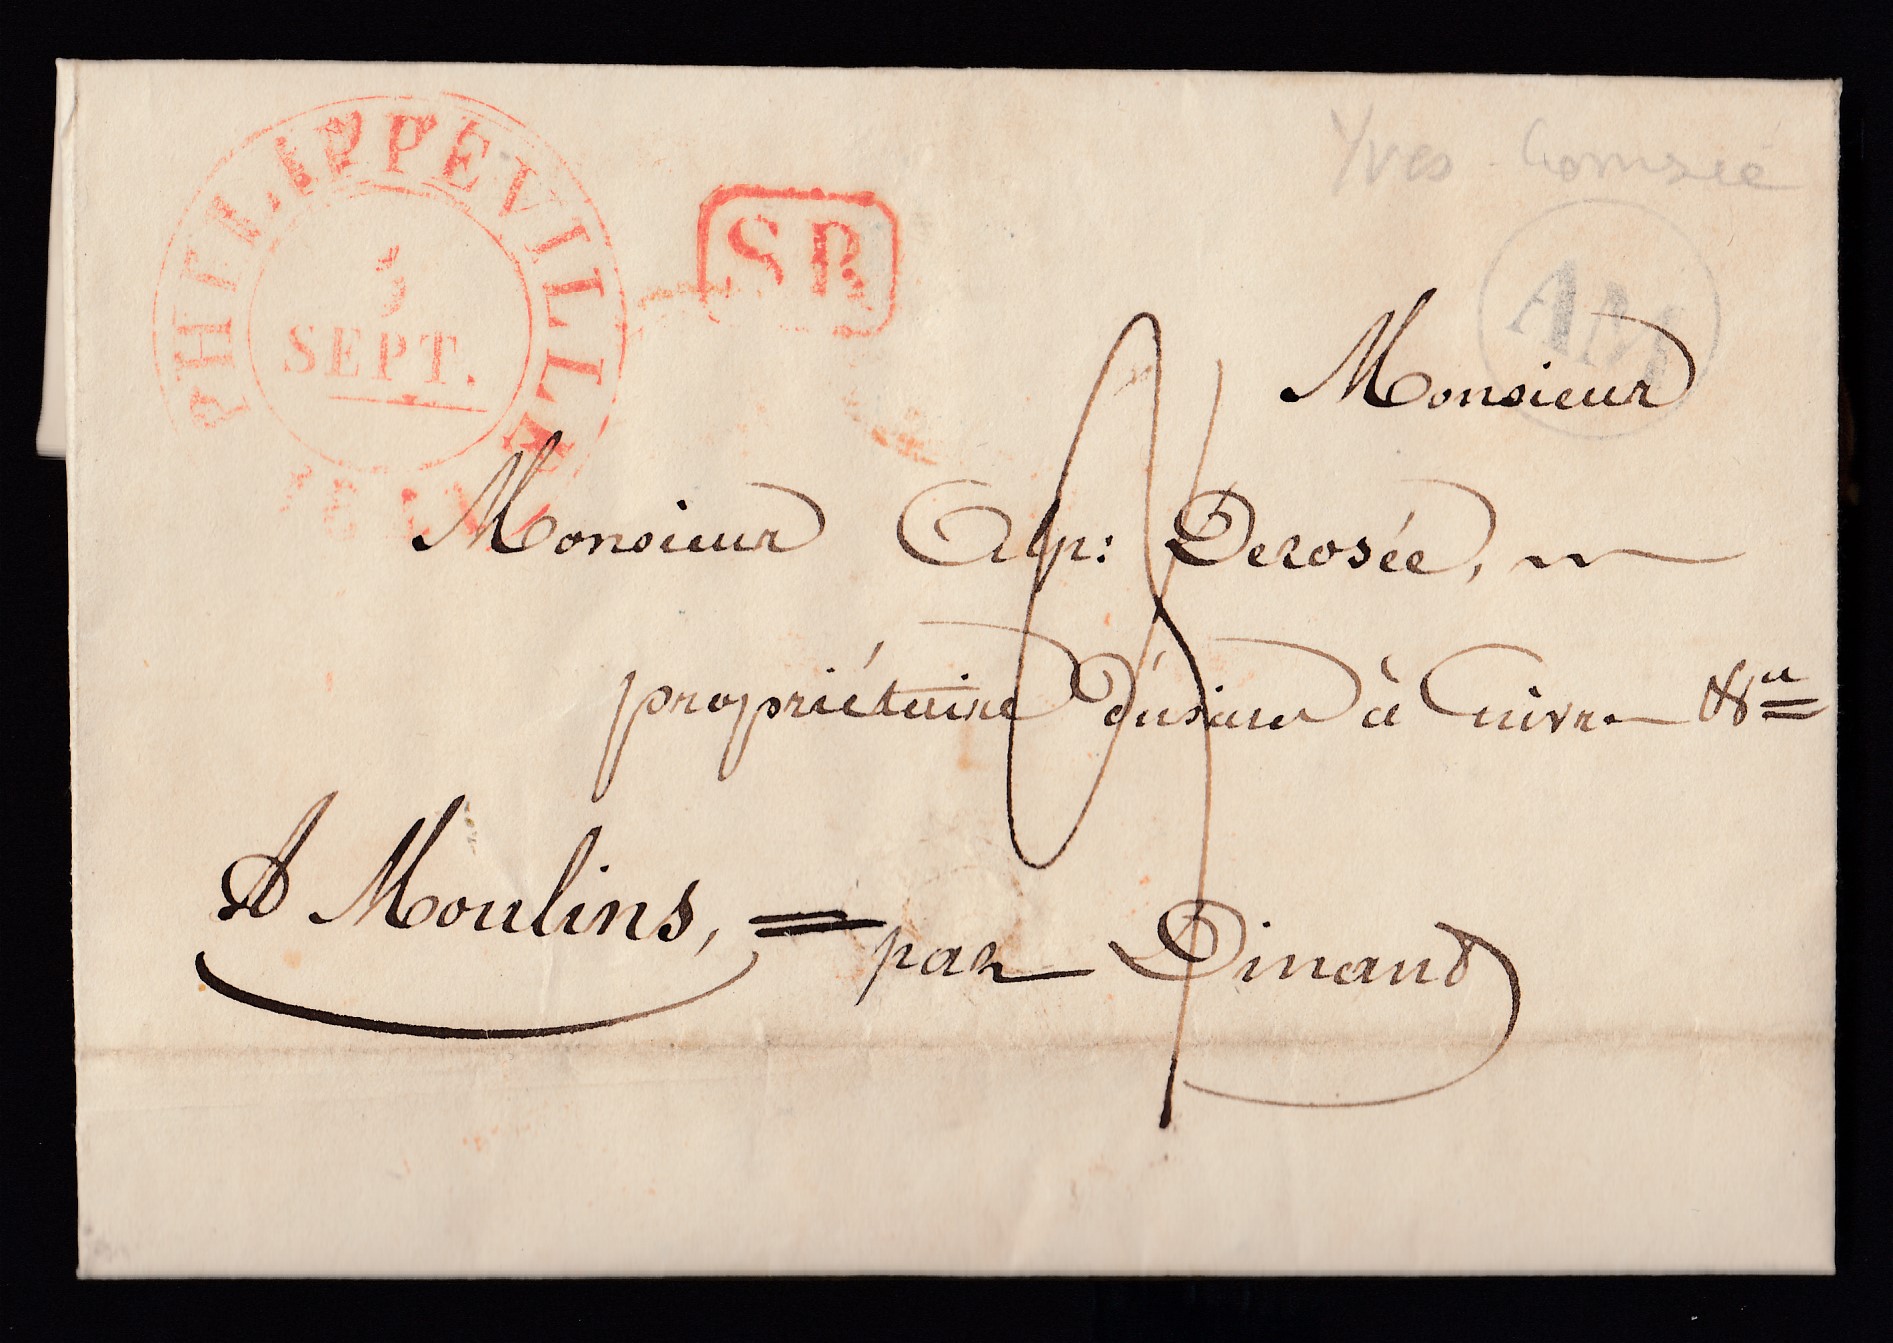 PHILIPPEVILLE
SEPT.
SR
Yves-Gomezée
AM
Monsieur
Monsieur Alp: Derosée,
propriétaire d'usines à Cuivre &a
A Moulins, = par Dinant